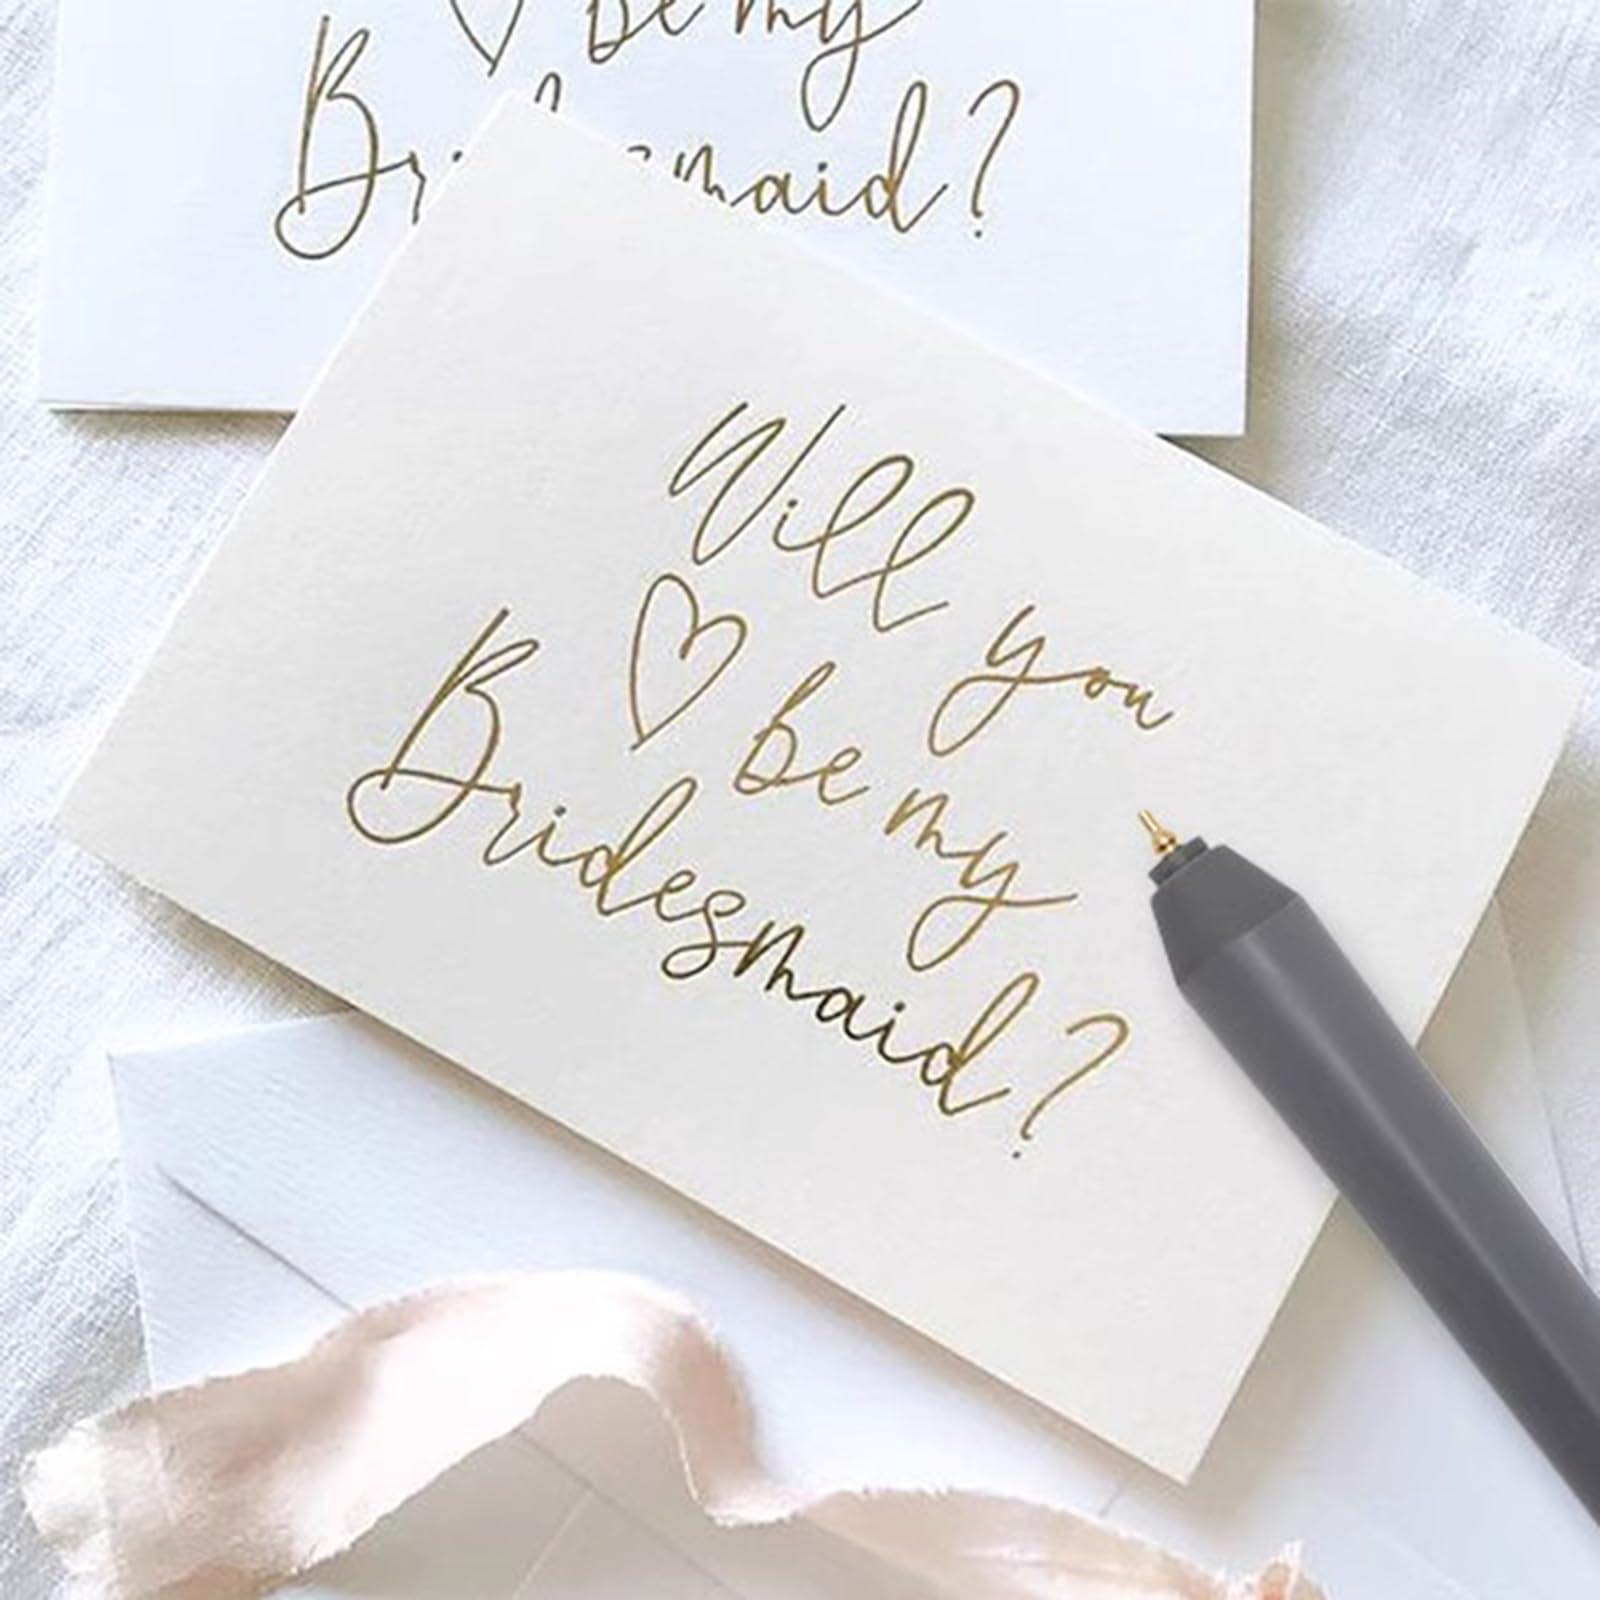 be my
Bridesmaid?
Will you
be my
Bridesmaid?